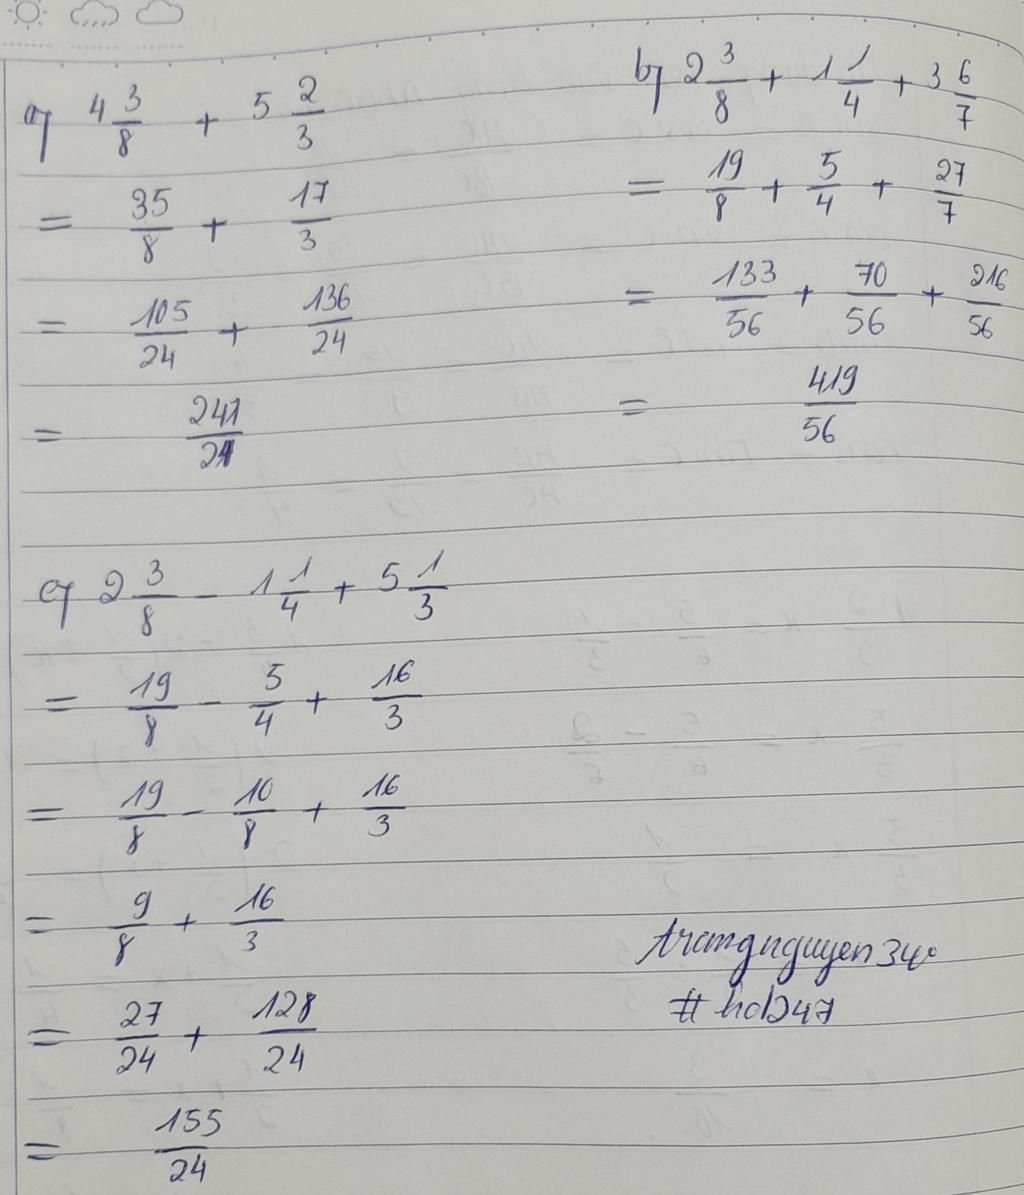 a) 4 3/8 + 5 2/3
= 35/8 + 17/3
= 105/24 + 136/24
= 241/24
b) 2 3/8 + 1 1/4 + 3 6/7
= 19/8 + 5/4 + 27/7
= 133/56 + 70/56 + 216/56
= 419/56
c) 2 3/8 - 1 1/4 + 5 1/3
= 19/8 - 5/4 + 16/3
= 19/8 - 10/8 + 16/3
= 9/8 + 16/3
= 27/24 + 128/24
= 155/24
# hd247